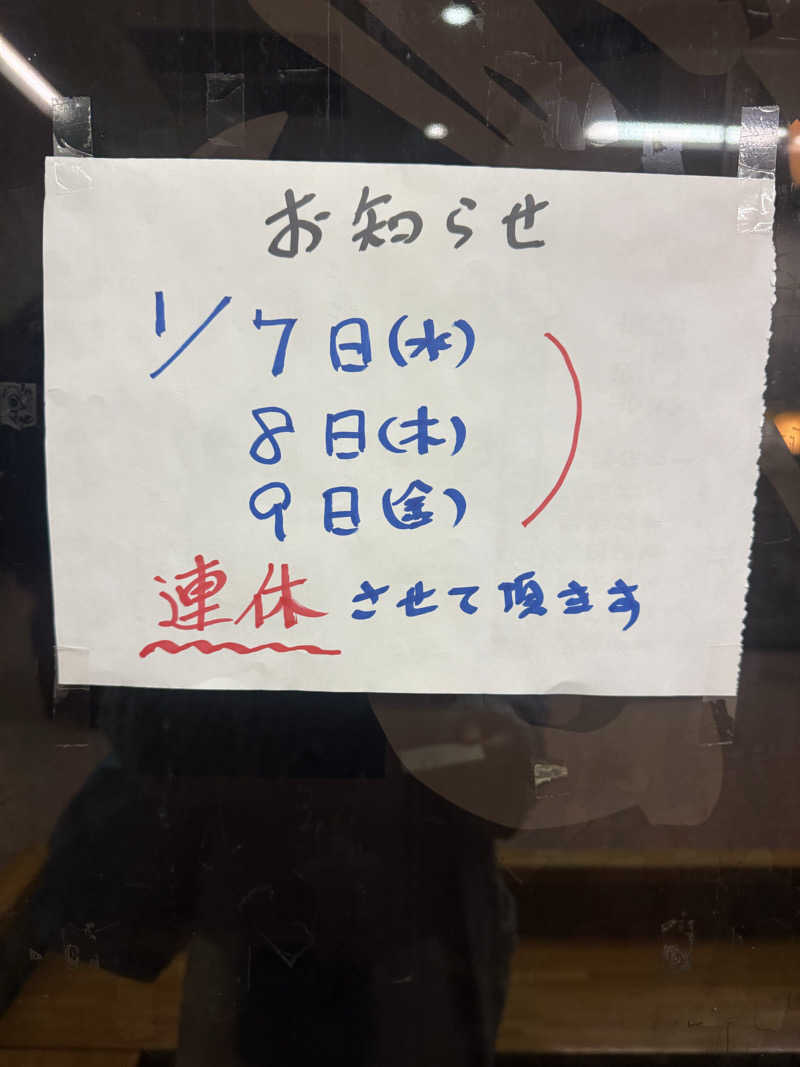 お知らせ
1/7日(水)
8日(木)
9日(金)
連休させて頂きます